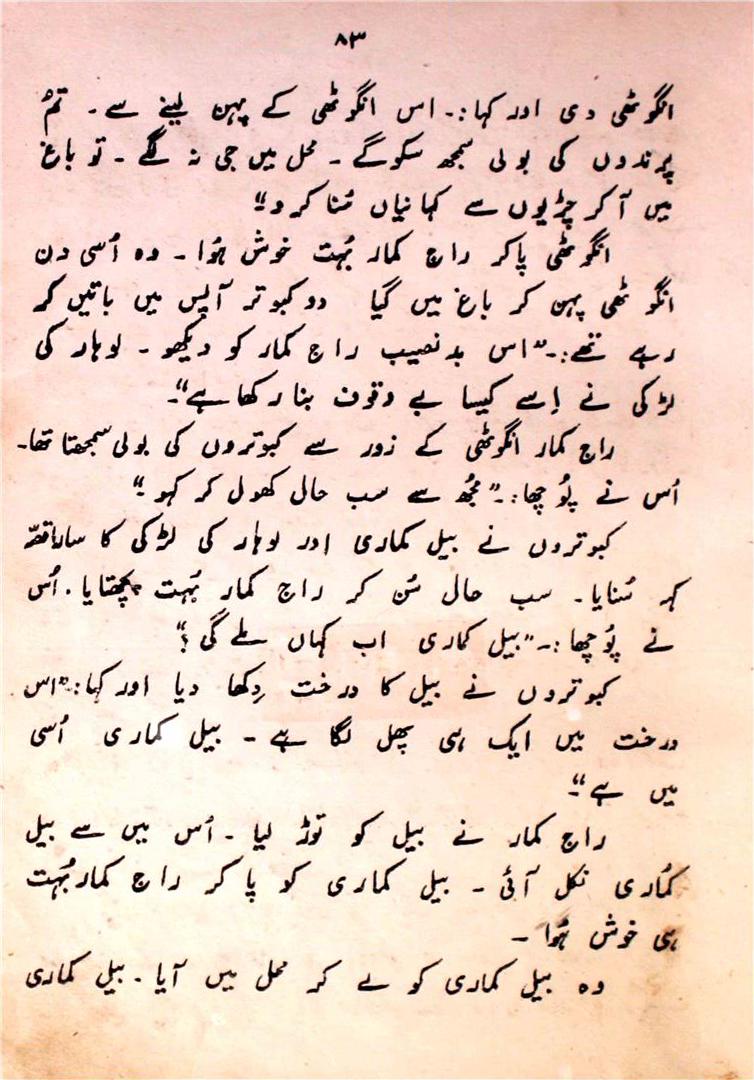 ۸۳
انگوٹھی دی اور کہا:۔ اس انگوٹھی کے پہن لینے سے۔ تمُ
پرندوں کی بولی سمجھ سکوگے۔ محل میں جی نہ لگے۔ تو باغ
میں آکر چڑیوں سے کہانیاں سُنا کرو"۔
انگوٹھی پاکر راج کمار بہُت خوش ہُوا۔ وہ اُسی دن
انگوٹھی پہن کر باغ میں گیا دو کبوتر آپس میں باتیں کر
رہے تھے:۔"اس بدنصیب راج کمار کو دیکھو۔ لوہار کی
لڑکی نے اِسے کیسا بے وقوف بنا رکھا ہے"۔
راج کمار انگوٹھی کے زور سے کبوتروں کی بولی سمجھتا تھا۔
اُس نے پوُچھا:۔"مجھُ سے سب حال کھول کر کہو"۔
کبوتروں نے بیل کماری اور لوہار کی لڑکی کا سارا قصّہ
کہہ سُنایا۔ سب حال سُن کر راج کمار بہُت پچھتایا۔ اُس
نے پوُچھا:۔"بیل کماری اب کہاں ملے گی؟"
کبوتروں نے بیل کا درخت دِکھا دیا اور کہا:"اس
درخت میں ایک ہی پھل لگا ہے۔ بیل کماری اُسی
میں ہے"۔
راج کمار نے بیل کو توڑ لیا۔ اُس میں سے بیل
کماری نکل آئی۔ بیل کماری کو پا کر راج کمار بہُت
ہی خوش ہُوا۔
وہ بیل کماری کو لے کر محل میں آیا۔ بیل کماری